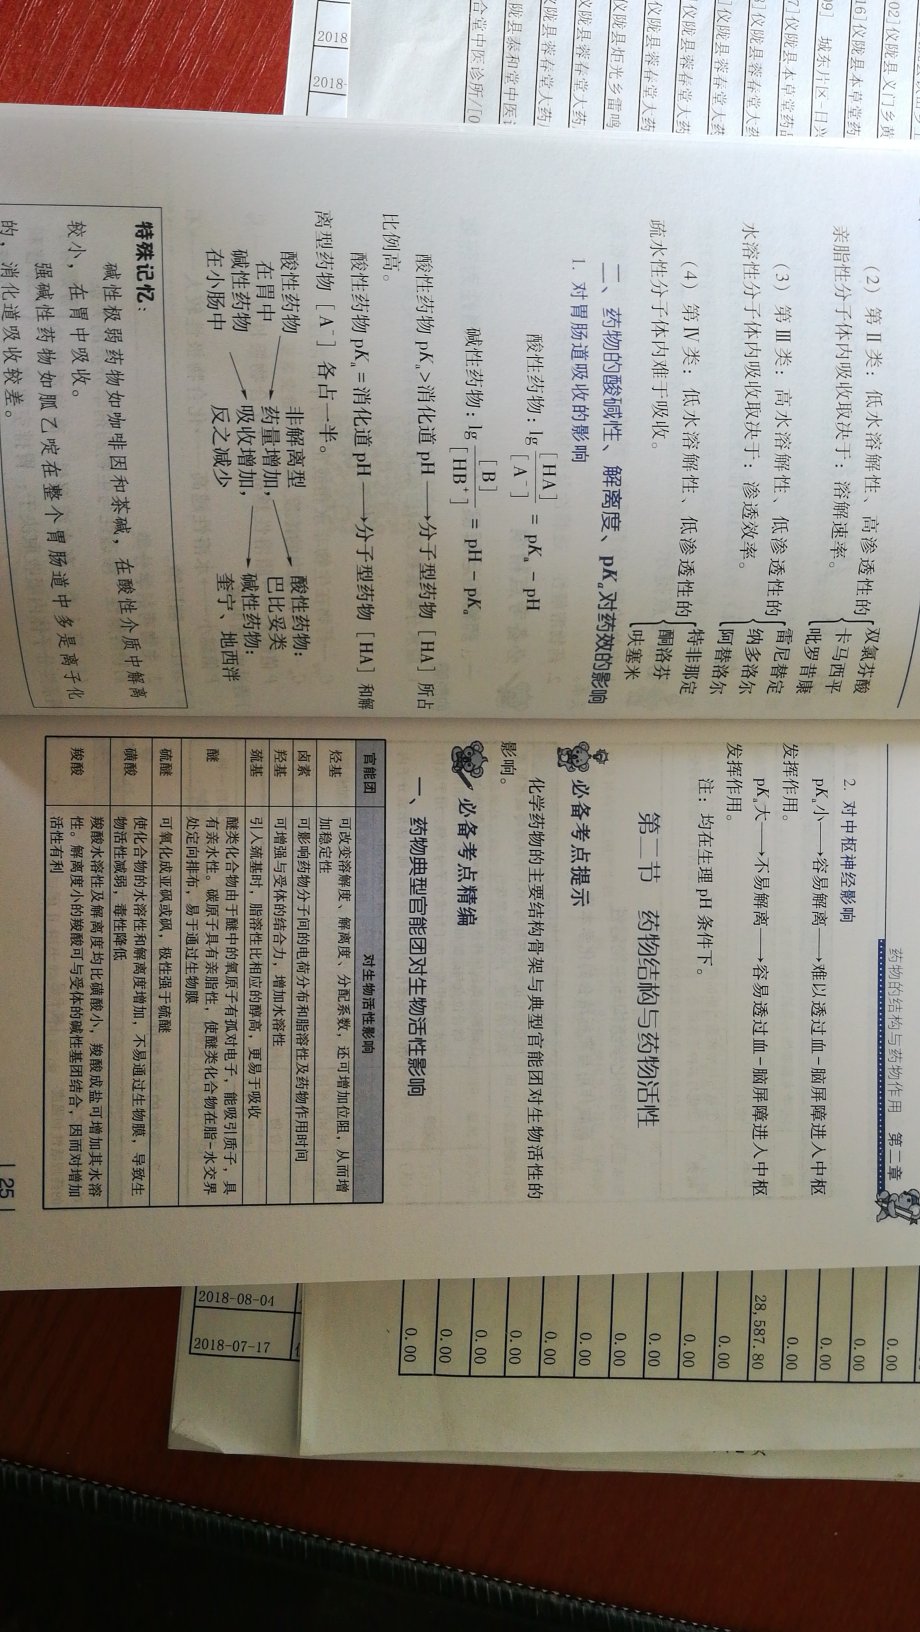 （2）第Ⅱ类：低水溶解性、高渗透性的
亲脂性分子体内吸收取决于：溶解速率。
双氯芬酸
卡马西平
吡罗昔康
（3）第Ⅲ类：高水溶解性、低渗透性的
水溶性分子体内吸收取决于：渗透效率。
雷尼替定
纳多洛尔
阿替洛尔
（4）第Ⅳ类：低水溶解性、低渗透性的
疏水性分子体内难于吸收。
特非那定
酮洛芬
呋塞米
二、药物的酸碱性、解离度、pKa对药效的影响
1. 对胃肠道吸收的影响
酸性药物：lg [HA]/[A⁻] = pKa - pH
碱性药物：lg [B]/[HB⁺] = pH - pKa
酸性药物 pKa＞消化道 pH ⟶分子型药物［HA］所占
比例高。
酸性药物 pKa = 消化道 pH ⟶分子型药物［HA］和解
离型药物［A⁻］各占一半。
酸性药物
在胃中
碱性药物
在小肠中
非解离型
药量增加，
吸收增加，
反之减少
酸性药物：
巴比妥类
碱性药物：
奎宁、地西泮
特殊记忆：
碱性极弱药物如咖啡因和茶碱，在酸性介质中解离
较小，在胃中吸收。
强碱性药物如胍乙啶在整个胃肠道中多是离子化
的，消化道吸收较差。
药物的结构与药物作用 第二章
2. 对中枢神经影响
pKa小⟶容易解离⟶难以透过血-脑屏障进入中枢
发挥作用。
pKa大⟶不易解离⟶容易透过血-脑屏障进入中枢
发挥作用。
注：均在生理 pH 条件下。
第二节 药物结构与药物活性
必备考点提示
化学药物的主要结构骨架与典型官能团对生物活性的
影响。
必备考点精编
一、药物典型官能团对生物活性影响
官能团 对生物活性影响
烃基 可改变溶解度、解离度、分配系数，还可增加位阻，从而增
加稳定性
卤素 可影响药物分子间的电荷分布和脂溶性及药物作用时间
羟基 可增强与受体的结合力，增加水溶性
巯基 引入巯基时，脂溶性比相应的醇高，更易于吸收
醚 醚类化合物由于醚中的氧原子有孤对电子，能吸引质子，具
有亲水性。碳原子具有亲脂性，使醚类化合物在脂-水交界
处定向排布，易于通过生物膜
硫醚 可氧化成亚砜或砜，极性强于硫醚
磺酸 使化合物的水溶性和解离度增加，不易通过生物膜，导致生
物活性减弱，毒性降低
羧酸 羧酸水溶性及解离度均比磺酸小，羧酸成盐可增加其水溶
性。解离度小的羧酸可与受体的碱性基团结合，因而对增加
活性有利
25
02]仪陇县义门乡黄
16]仪陇县本草堂药
09] 城东片区-日兴
7]仪陇县本草堂药
]仪陇县蓉春堂大药
仪陇县蓉春堂大药
仪陇县蓉春堂大药
仪陇县炬光乡雷鸣
仪陇县蓉春堂大药
陇县蓉春堂大药
陇县泰和堂中医
合堂中医诊所/[0
2018
2018-
0.00
0.00
0.00
0.00
28,587.80
0.00
0.00
0.00
0.00
0.00
0.00
0.00
0.00
0.00
0.00
2018-08-04
2018-07-17